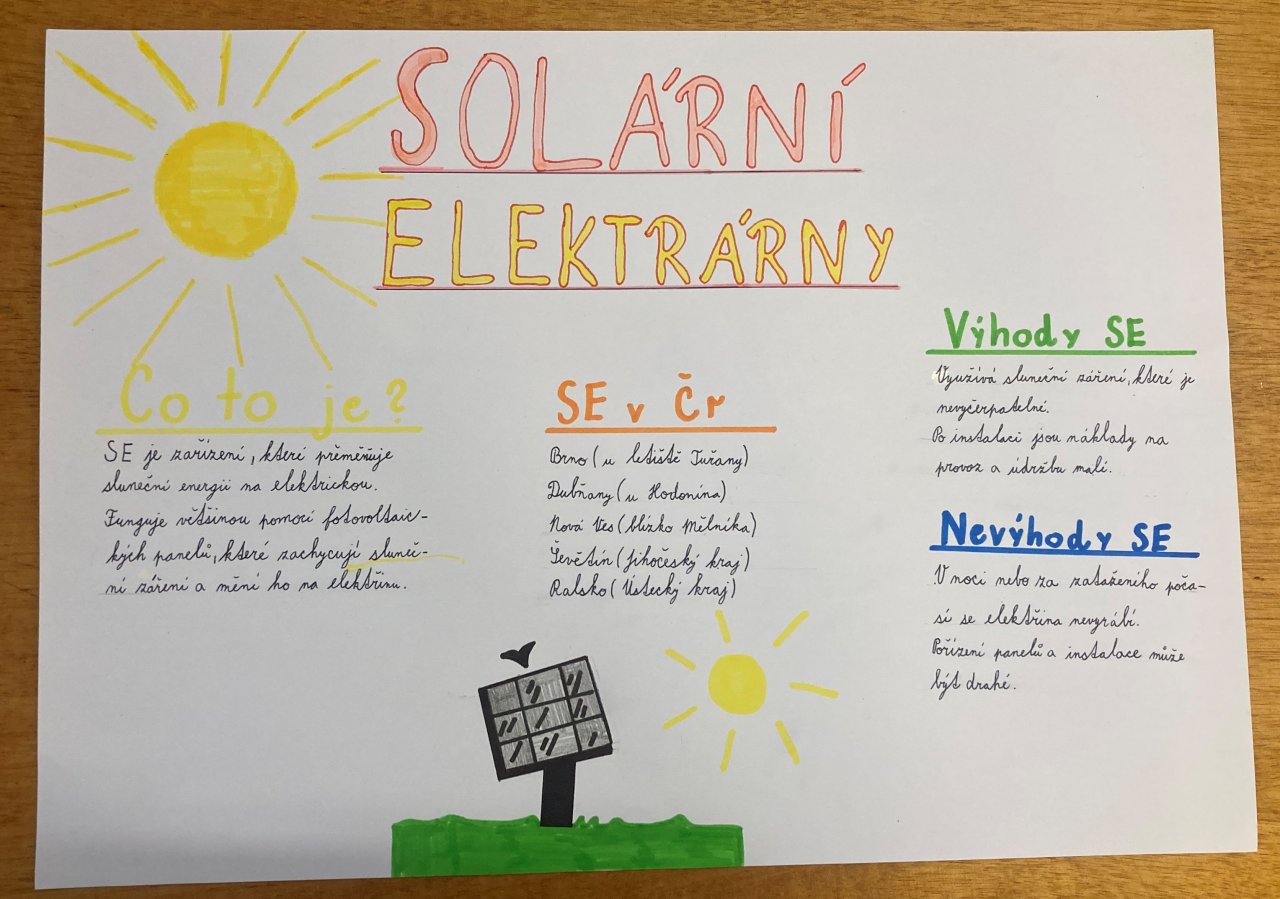 SOLÁRNÍ
ELEKTRÁRNY
Co to je?
SE je zařízení, které přeměňuje
sluneční energii na elektrickou.
Funguje většinou pomocí fotovoltaic-
kých panelů, které zachycují sluneč-
ní záření a mění ho na elektřinu.
SE v Čr
Brno (u letiště Tuřany)
Dubňany (u Hodonína)
Nová Ves (blízko Mělníka)
Ševětín (Jihočeský kraj)
Ralsko (Ústecký kraj)
Výhody SE
Využívá sluneční záření, které je
nevyčerpatelné.
Po instalaci jsou náklady na
provoz a údržbu malé.
Nevýhody SE
V noci nebo za zataženého poča-
sí se elektřina nevyrábí.
Pořízení panelů a instalace může
být drahé.